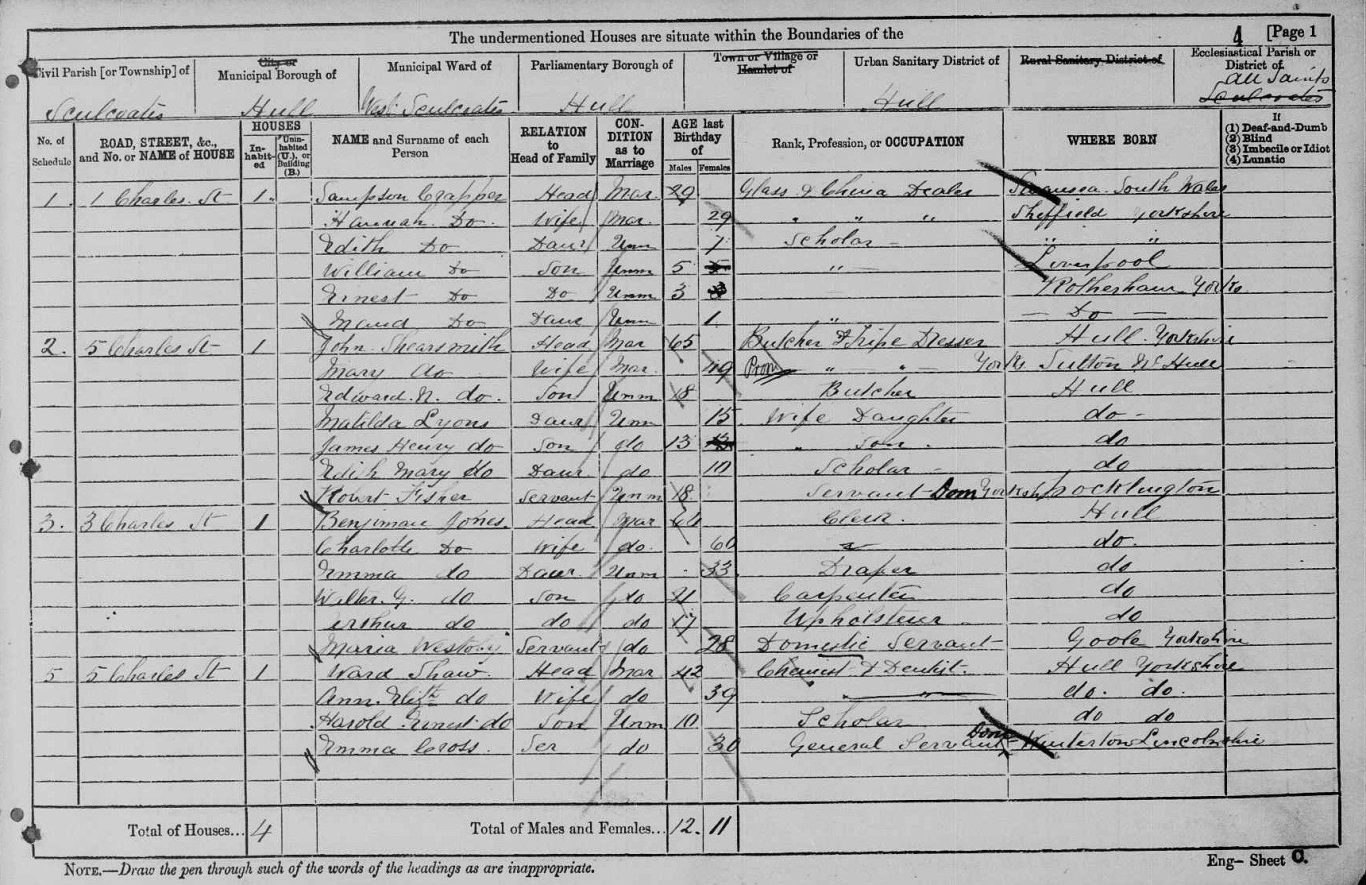 The undermentioned Houses are situate within the Boundaries of the
4 [Page 1
Civil Parish [or Township] of
City or Municipal Borough of
Municipal Ward of
Parliamentary Borough of
Town or Village or Hamlet of
Urban Sanitary District of
Rural Sanitary District of
Ecclesiastical Parish or District of
Sculcoates Hull West Sculcoates Hull Hull All Saints Sculcoates
No. of Schedule
ROAD, STREET, &c., and No. or NAME of HOUSE
HOUSES
In-habit-ed
Unin-habited (U.), or Building (B.)
NAME and Surname of each Person
RELATION to Head of Family
CON-DITION as to Marriage
AGE last Birthday of
Males Females
Rank, Profession, or OCCUPATION
WHERE BORN
If
(1) Deaf-and-Dumb
(2) Blind
(3) Imbecile or Idiot
(4) Lunatic
1. 1 Charles St 1 Sampson Crapper Head Mar. 29 Glass & China Dealer Swansea South Wales
Hannah Do. Wife Mar. 29 " " " Sheffield Yorkshire
Edith Do Daur Unm 7 Scholar " "
William Do Son Unm 5 " Liverpool
Ernest Do Do Unm 3 Rotherham Yorks
Maud Do Daur Unm 1 " Do
2. 5 Charles St 1 John Shearsmith Head Mar 65 Butcher & Tripe Dresser Hull Yorkshire
Mary do Wife Mar. 49 " " Yorks Sutton Nr Hull
Edward N. do. Son Unm 18 Butcher Hull
Matilda Lyons Daur Unm 15 Wife Daughter do
James Henry do Son do 13 " Son. do
Edith Mary do Daur do 10 Scholar do
Robert Fisher Servant Unm 18 Servant Dom Yorksh Pocklington
3. 3 Charles St 1 Benjiman Jones. Head Mar 64 Clerk. Hull
Charlotte Do Wife do. 60 do.
Emma do Daur. Unm 33 Draper do
Walter G. do Son do 21 Carpenter do
Arthur do do do 17 Upholsterer do
Maria Westoby Servant do 28 Domestic Servant Goole Yorkshire
5 5 Charles St 1 Ward Shaw Head Mar 42 Chemist & Dentist. Hull Yorkshire
Ann Elizth do Wife do 39 " do. do.
Harold Ernest do Son Unm 10 Scholar do do
Emma Cross. Ser do 30 General Servant Dom Winterton Lincolnshire
Total of Houses... 4 Total of Males and Females... 12. 11
NOTE.—Draw the pen through such of the words of the headings as are inappropriate.
Eng– Sheet C.